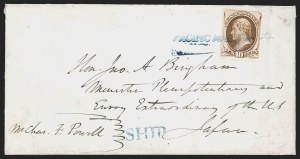 PACIFIC MAIL
10
Hon. Jno. A. Bingham
Minister Plenipotentiary and
Envoy Extraordinary of the U.S
Japan.
Mr Chas. F. Powell
SHIP